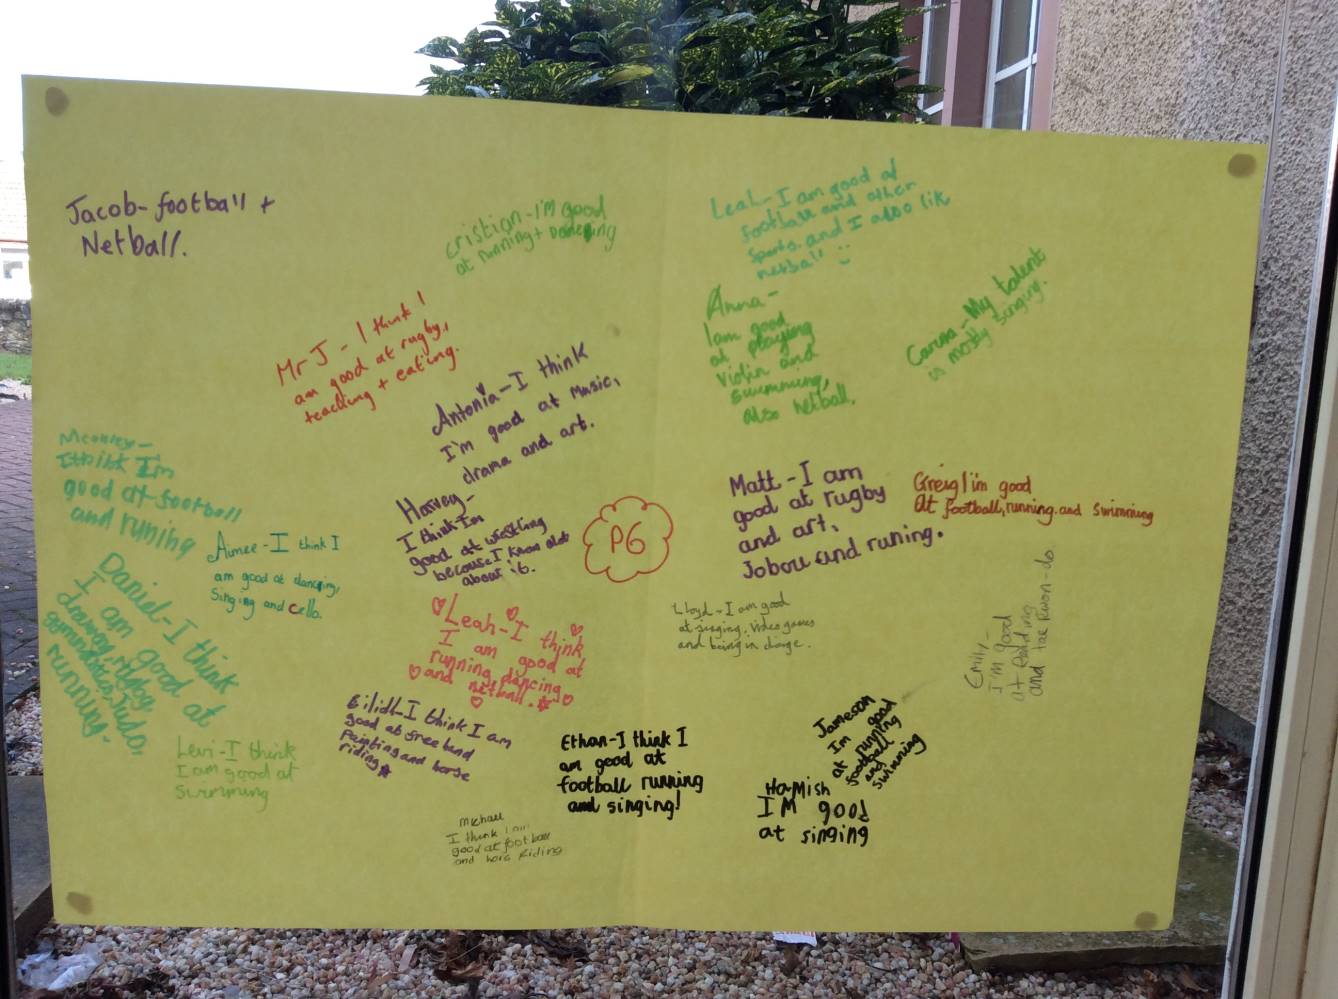 Jacob-football +
Netball.
cristian-I'm good
at running +
Leah-I am good at
football and other
sports. and I also lik
netball
Anna-
I am good
at playing
violin and
swimming,
also Netball.
-My talent
is mostly singing.
Mr J - I think I
am good at rugby,
teaching + eating.
Antonia-I think
I'm good at music,
drama and art.
I think Im
good at football
and runing
Aimee-I think I
am good at dancing,
singing and cello.
Harvey-
I think Im
good at
because I know alot
about it.
P6
Matt-I am
good at rugby
and art.
and runing.
Greig I'm good
at football, running. and swimming
Daniel-I think
I am good at
drawing, rugby,
gymnastics, Judo,
running.
Leah-I think
I am good at
running, dancing
and netball.
Lloyd-I am good
at singing, video games
and being in charge.
Emily-
I'm good
at
and tae kwon-do.
Levi-I think
I am good at
swimming
Eilidh-I think I am
good at free hand
painting and horse
riding
Ethan-I think I
am good at
football running
and singing!
Jameson
Im good
at running
football
and
swimming
HaMish
IM good
at singing
Michael
I think I am
good at football
and riding